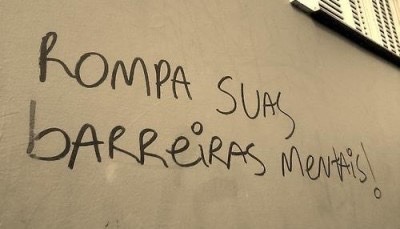 ROMPA SUAS
bARREiRAS MENtAiS!